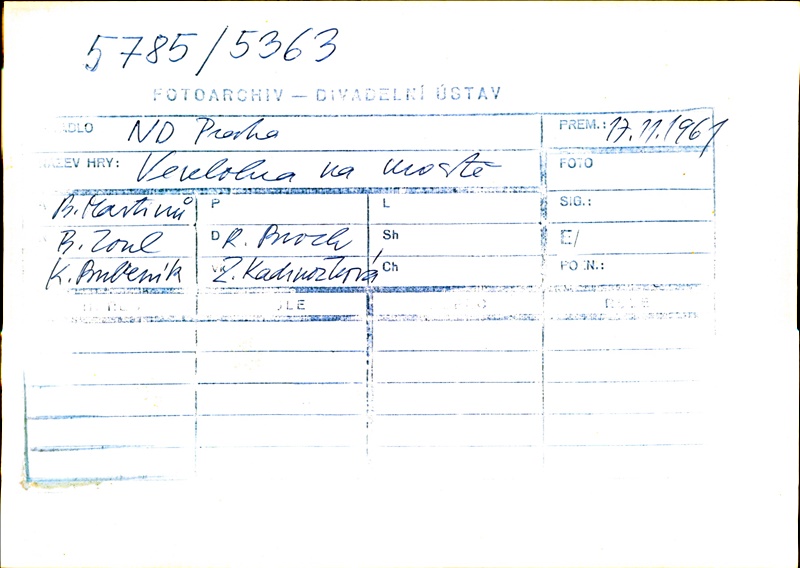 5785/5363
FOTOARCHIV — DIVADELNÍ ÚSTAV
ADLO ND Praha PREM.: 17.11.1961
NÁZEV HRY: Veselohra na mostě FOTO
B. Martinů P L SIG.:
B. Zoul D R. Broch Sh E/
K. Bubeník VK Z. Kadrnožková Ch PO.N.: